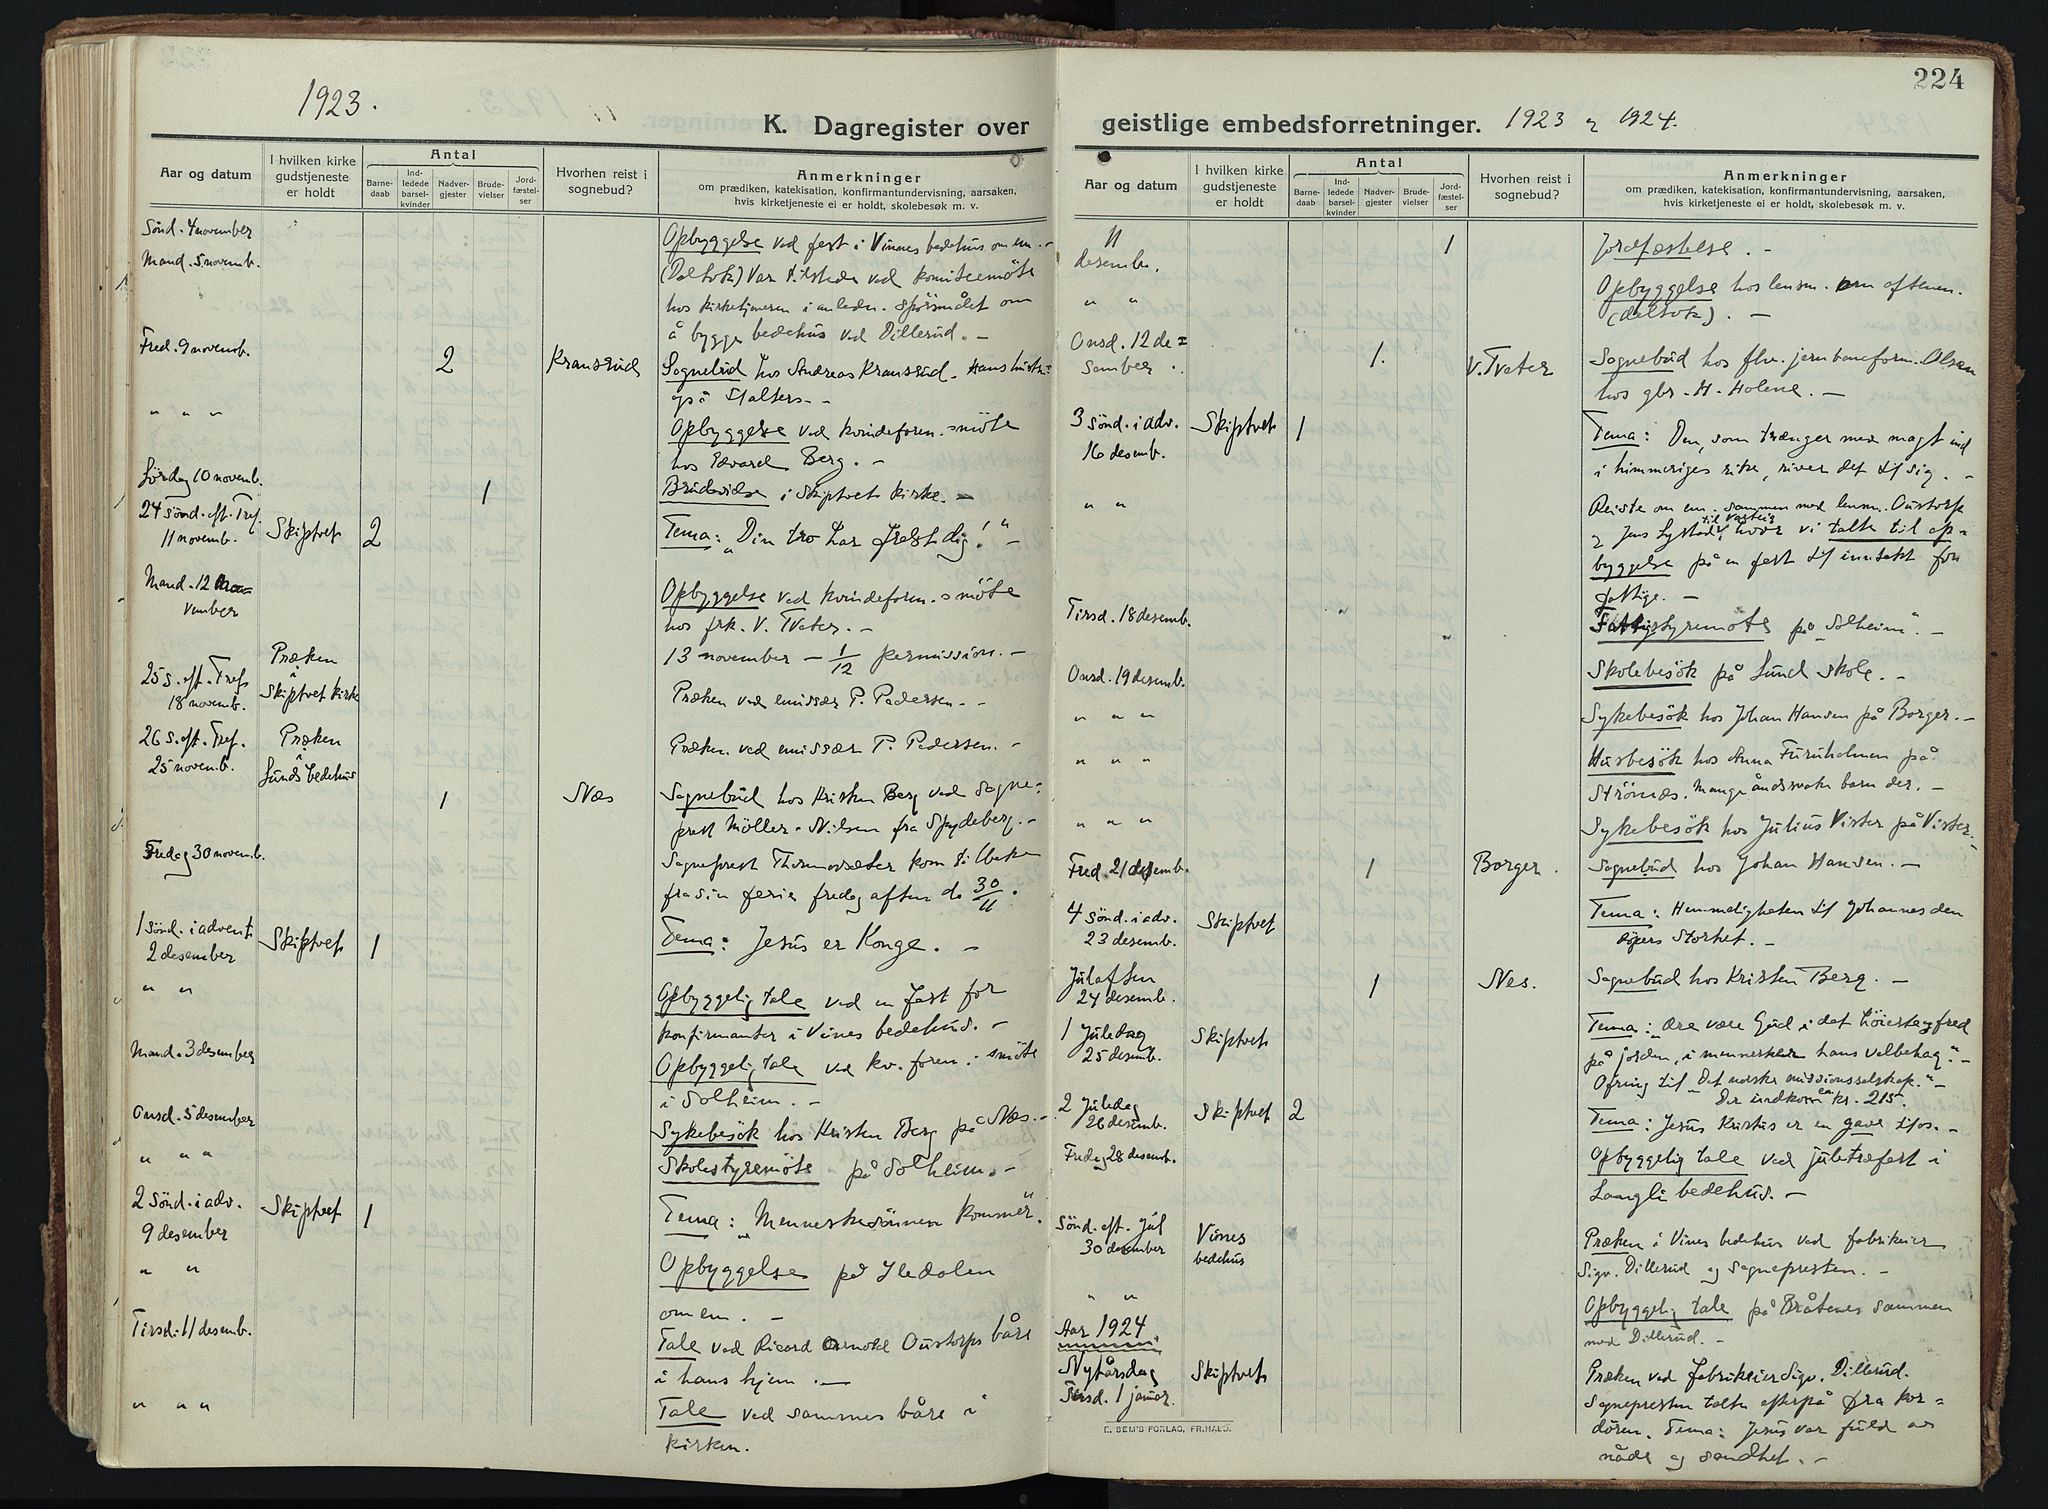 1923.
K. Dagregister over
Aar og datum
I hvilken kirke gudstjeneste er holdt
Antal
Barne-daab
Ind-ledede barsel-kvinder
Nadver-gjester
Brude-vielser
Jord-fæstel-ser
Hvorhen reist i sognebud?
Anmerkninger
om prædiken, katekisation, konfirmantundervisning, aarsaken,
hvis kirketjeneste ei er holdt, skolebesøk m. v.
Sönd. 4 november
Opbyggelse ved fest i Vines bedehus om em. -
Mand. 5 novemb.
(Deltok) Var tilstede ved komiteemöte
hos kirketjeneren i anledn. spörsmålet om
å bygge bedehus ved Dillerud. -
Fred. 9 novemb. 2 Kransrud
Sognebud hos Andreas Kransrud. Hans hustr.
også Stalters. -
" " "
Opbyggelse ved kvindeforen.smöte
hos Edvard Berg. -
Lördag 10 novemb. 1
Brudevielse i Skiptvet kirke. -
24 sönd. eft. Tref.
11 novemb. Skiptvet 2
Tema: "Din tro har frelst dig!" -
Mand. 12 no-
vember
Opbyggelse ved kvindeforen.smöte
hos frk. V. Tveter. -
13 november - 1/12 permission. -
25 s. eft. Tref.
18 novemb.
Præken
i
Skiptvet kirke
Præken ved emissær P. Pedersen. -
26 s. eft. Tref.
25 novemb.
Præken
i
Lunds bedehus
Præken ved emissær P. Pedersen. -
1 Næs
Sognebud hos Kristen Berg ved sogne-
prest Möller-Nilsen fra Spydeberg. -
Fredag 30 novemb.
Sogneprest Thormodsæter kom tilbake
fra sin ferie fredag aften d. 30/11.
1 sönd. i advent
2 desember Skiptvet 1
Tema: Jesus er Konge. -
" "
Opbyggelig tale ved en fest for
konfirmanter i Vines bedehus. -
Mand. 3 desember
Opbyggelig tale ved kv. foren.smöte
i Solheim. -
Onsd. 5 desember
Sykebesök hos Kristen Berg på Næs. -
" " "
Skolestyremöte på Solheim. -
2 sönd. i adv.
9 desember Skiptvet 1
Tema: "Menneskesönnen kommer".
" "
Opbyggelse på Iledalen
om em. -
Tirsd. 11 desemb.
Tale ved Ricard Arnold Oustorps båre
i hans hjem. -
" " "
Tale ved sammes båre i
kirken.
224
geistlige embedsforretninger. 1923 og 1924.
Aar og datum
I hvilken kirke gudstjeneste er holdt
Antal
Barne-daab
Ind-ledede barsel-kvinder
Nadver-gjester
Brude-vielser
Jord-fæstel-ser
Hvorhen reist i sognebud?
Anmerkninger
om prædiken, katekisation, konfirmantundervisning, aarsaken,
hvis kirketjeneste ei er holdt, skolebesøk m. v.
11
desemb. 1
Jordfæstelse. -
" "
Opbyggelse hos lensm. om aftenen.
(deltok). -
Onsd. 12 de=
sember 1. V. Tveter
Sognebud hos fhv. jernbaneform. Olsen
hos gbr. H. Holene. -
3 sönd. i adv.
16 desemb. Skiptvet 1
Tema: Den, som trænger med magt ind
i himmeriges rike, river det til sig. -
" "
Reiste om em. sammen med lensm. Oustorp
og Jens Lystad til Varteig, hvor vi talte til op-
byggelse på en fest til inntekt for
fattige. -
Tirsd. 18 desemb.
Fattigstyremöte på "Solheim". -
Onsd. 19 desemb.
Skolebesök på Lund skole. -
" " "
Sykebesök hos Johan Hansen på Borger. -
" " "
Husbesök hos Anna Furuholmen på
Strönæs. Mange åndssvake barn der. -
" " "
Sykebesök hos Julius Vister på Vister. -
Fred. 21 desemb. 1 Borger.
Sognebud hos Johan Hansen. -
4 sönd. i adv.
23 desemb. Skiptvet
Tema: Hemmeligheten til Johannes den
döpers storhet. -
Julaften
24 desemb. 1 Nes.
Sognebud hos Kristen Berg. -
1 Juledag
25 desemb. Skiptvet
Tema: "Ære være Gud i det höieste og fred
på jorden, i mennesker hans velbehag." -
Ofring til "Det norske missionsselskap." -
Der indkom ca. kr. 215.
2 Juledag
26 desemb. Skiptvet 2
Tema: Jesus Kristus er en gave til os. -
Fredag 28 desemb.
Opbyggelig tale ved juletræfest i
Langli bedehus. -
Sönd. eft. Jul
30 desember
Vines
bedehus
Præken i Vines bedehus ved fabrikeier
Sigv. Dillerud og sognepresten. -
" "
Opbyggelig tale på Bråtenes sammen
med Dillerud. -
Aar 1924
Nytårsdag
Tirsd. 1 januar. Skiptvet
Præken ved fabrikeier Sigv. Dillerud.
Sognepresten talte efterpå fra kor-
dören. Tema: Jesus var fuld av
nåde og sandhet. -
E. SEM'S FORLAG, FR.HALD.